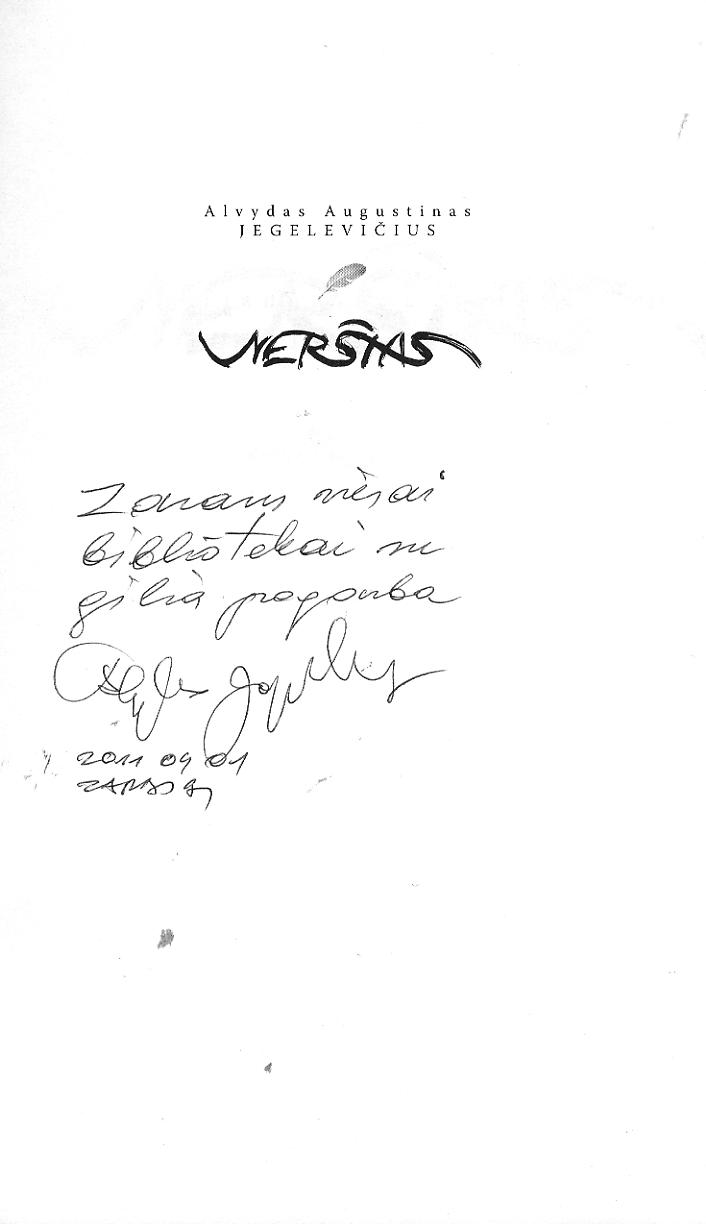 Alvydas Augustinas
JEGELEVIČIUS
NERŠTAS
Zarasų viešai
bibliotekai su
gilia pagarba
2011 04 01
ZARASAI